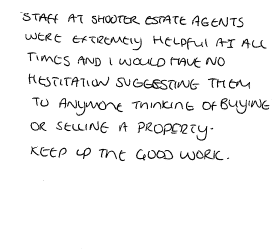 STAFF AT SHOOTER ESTATE AGENTS
WERE EXTREMELY HELPFUL AT ALL
TIMES AND I WOULD HAVE NO
HESTITATION SUGGESTING THEM
TO ANYMONE THINKING OF BUYING
OR SELLING A PROPERTY.
KEEP UP THE GOOD WORK.